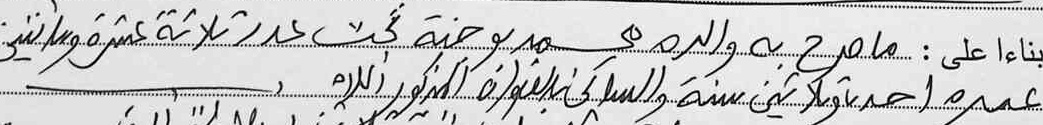 بناءا على: ما صرح به والده محمد بوخنة تحت عدد ثلاثة عشرة ومائتين
عمره احد وثلاثين سنة والساكن بالعنوان المذكور اعلاه